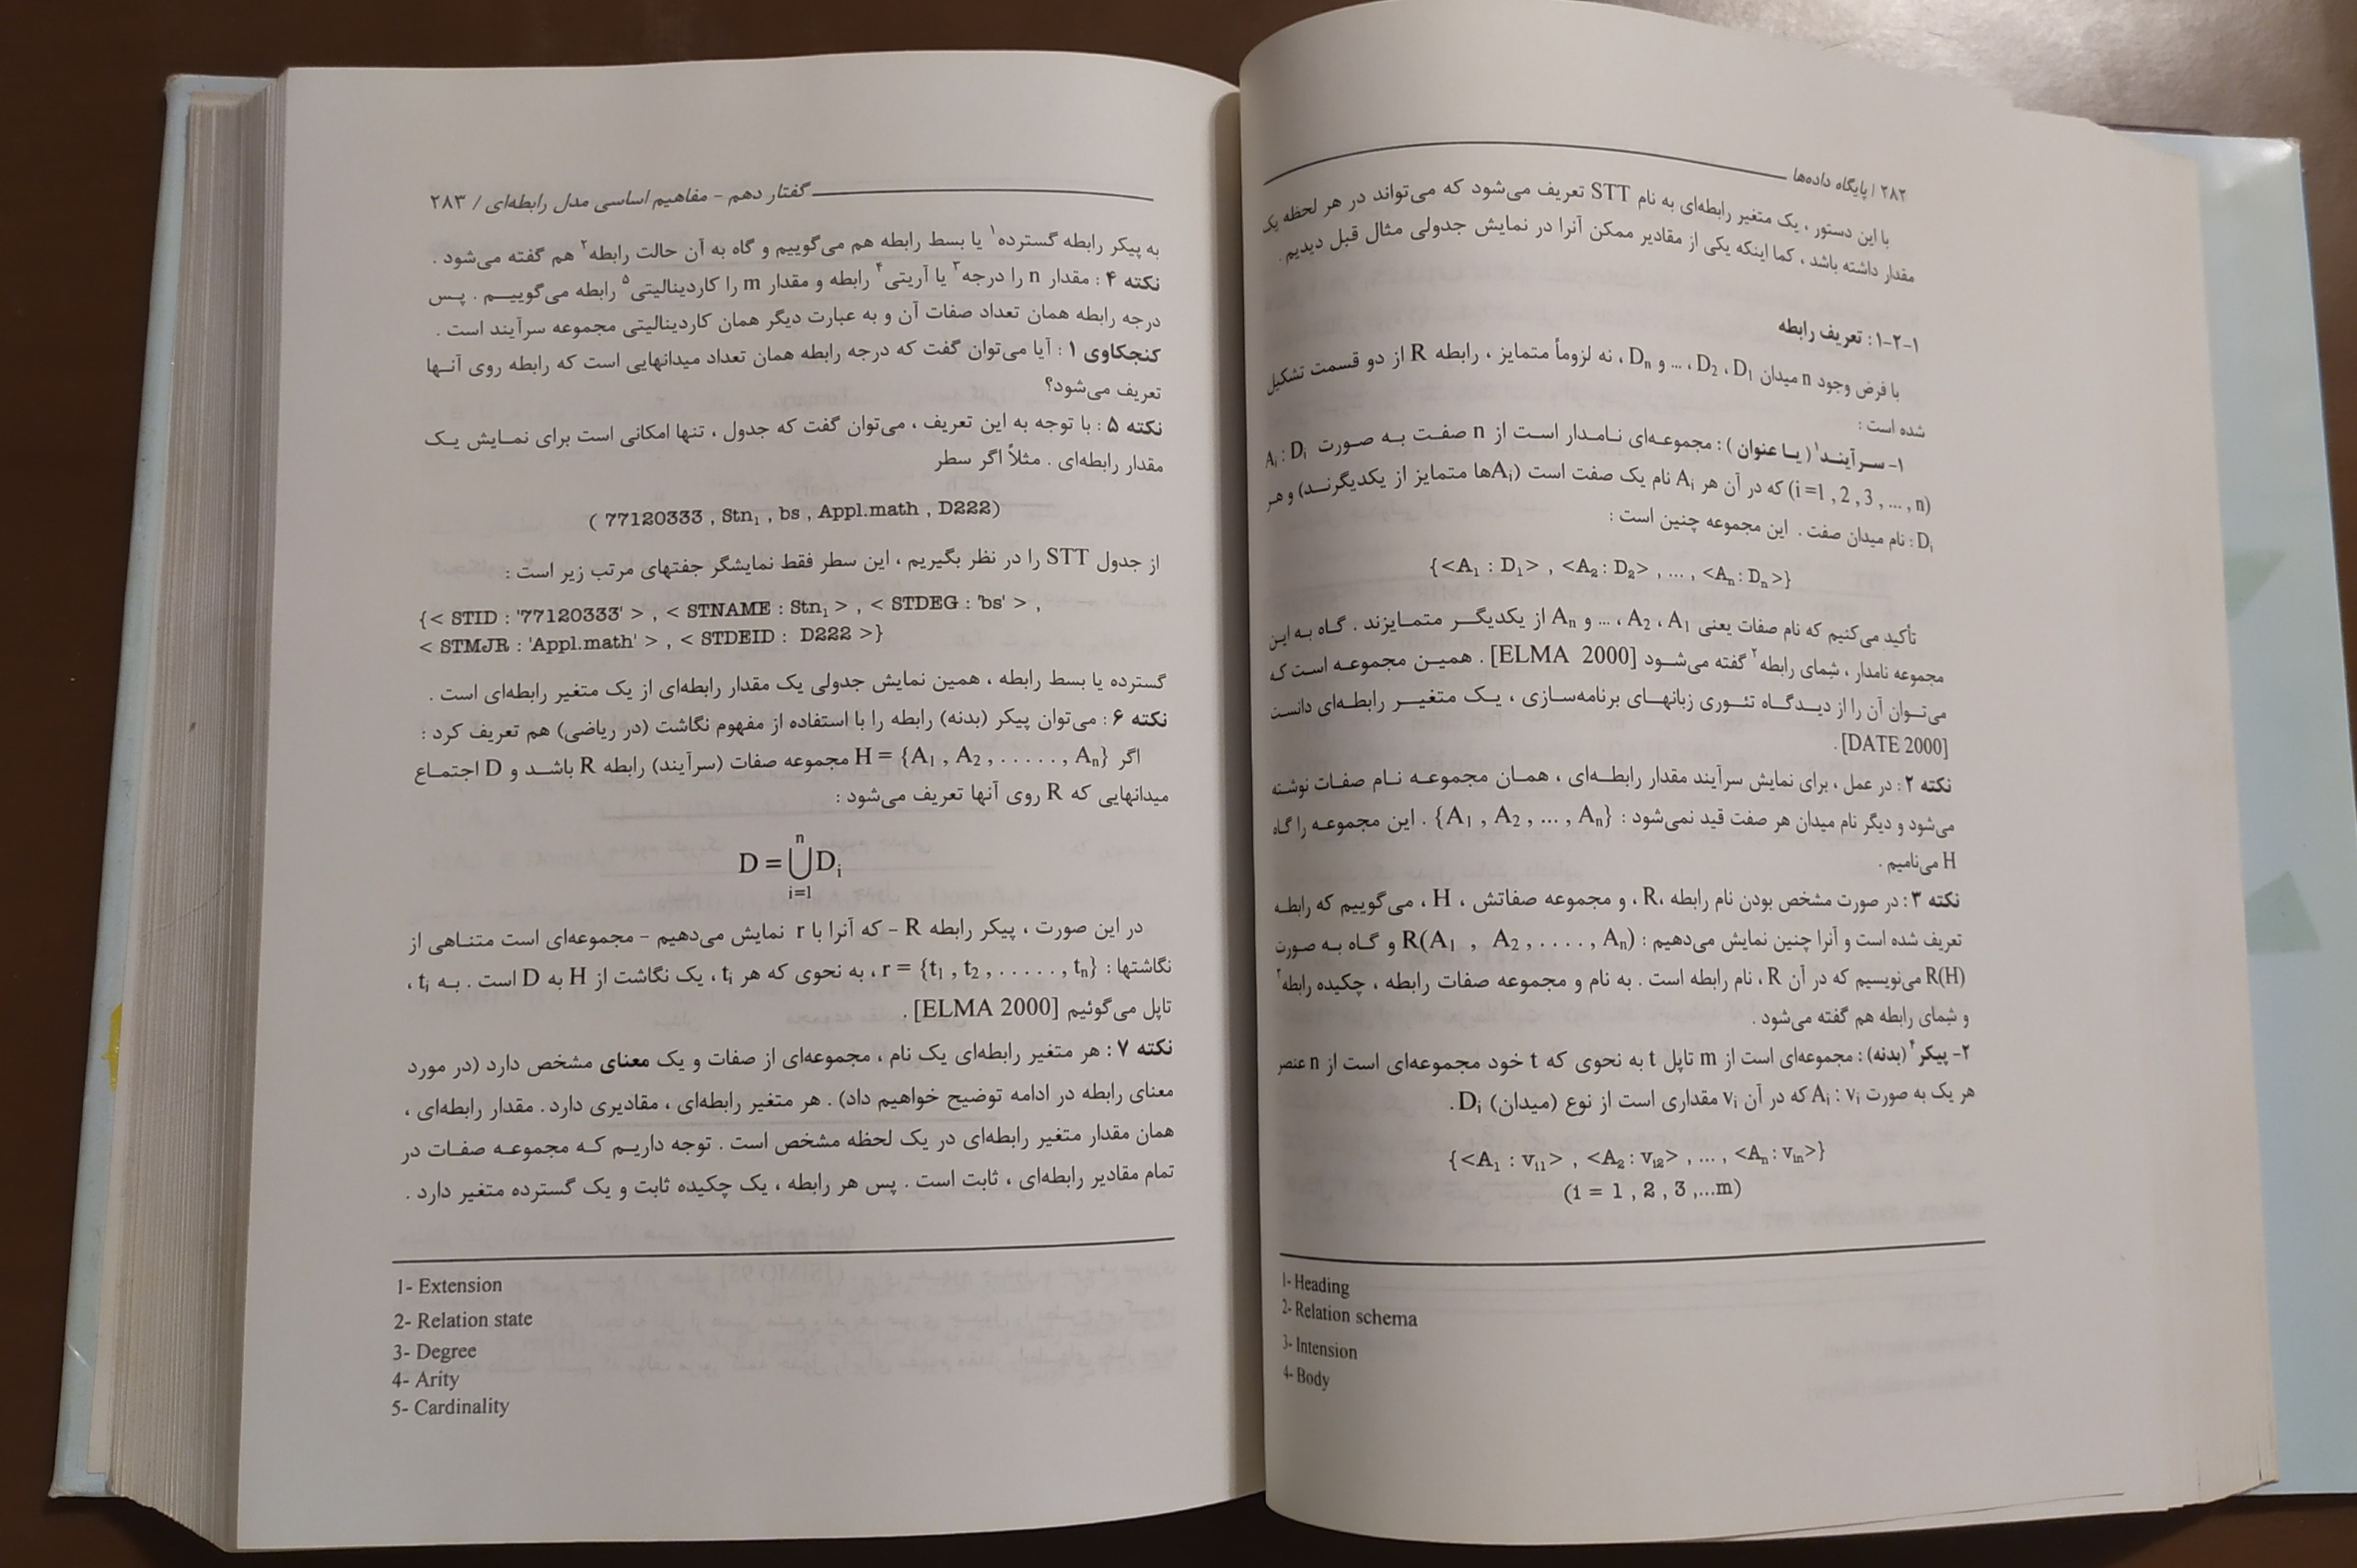 ۲۸۲ / پایگاه داده‌ها
با این دستور ، یک متغیر رابطه‌ای به نام STT تعریف می‌شود که می‌تواند در هر لحظه یک
مقدار داشته باشد ، کما اینکه یکی از مقادیر ممکن آنرا در نمایش جدولی مثال قبل دیدیم .
۱-۲-۱ : تعریف رابطه
با فرض وجود n میدان D1 ، D2 ، ... و Dn ، نه لزوماً متمایز ، رابطه R از دو قسمت تشکیل
شده است :
۱- سرآیند۱ (یا عنوان ) : مجموعه‌ای نامدار است از n صفت به صورت Ai : Di
(i =1 , 2 , 3 , ... , n) که در آن هر Ai نام یک صفت است (Aiها متمایز از یکدیگرند) و هر
Di : نام میدان صفت . این مجموعه چنین است :
{<A1 : D1> , <A2 : D2> , ... , <An : Dn >}
تأکید می‌کنیم که نام صفات یعنی A1 ، A2 ، ... و An از یکدیگر متمایزند . گاه به این
مجموعه نامدار ، شِمای رابطه۲ گفته می‌شود [ELMA 2000] . همین مجموعه است که
می‌توان آن را از دیدگاه تئوری زبانهای برنامه‌سازی ، یک متغیر رابطه‌ای دانست
[DATE 2000].
نکته ۲ : در عمل ، برای نمایش سرآیند مقدار رابطه‌ای ، همان مجموعه نام صفات نوشته
می‌شود و دیگر نام میدان هر صفت قید نمی‌شود : {A1 , A2 , ... , An} . این مجموعه را گاه
H می‌نامیم .
نکته ۳ : در صورت مشخص بودن نام رابطه ،R ، و مجموعه صفاتش ، H ، می‌گوییم که رابطه
تعریف شده است و آنرا چنین نمایش می‌دهیم : R(A1 , A2 , . . . . , An) و گاه به صورت
R(H) می‌نویسیم که در آن R ، نام رابطه است . به نام و مجموعه صفات رابطه ، چکیده رابطه۳
و شِمای رابطه هم گفته می‌شود .
۲- پیکر۴ (بدنه) : مجموعه‌ای است از m تاپل t به نحوی که t خود مجموعه‌ای است از n عنصر
هر یک به صورت Ai : vi که در آن vi مقداری است از نوع (میدان) Di .
{<A1 : vi1> , <A2 : vi2> , ... , <An : vin>}
(i = 1 , 2 , 3 ,...m)
1- Heading
2- Relation schema
3- Intension
4- Body
گفتار دهم - مفاهیم اساسی مدل رابطه‌ای / ۲۸۳
به پیکر رابطه گسترده۱ یا بسط رابطه هم می‌گوییم و گاه به آن حالت رابطه۲ هم گفته می‌شود .
نکته ۴ : مقدار n را درجه۳ یا آریتی۴ رابطه و مقدار m را کاردینالیتی۵ رابطه می‌گوییم . پس
درجه رابطه همان تعداد صفات آن و به عبارت دیگر همان کاردینالیتی مجموعه سرآیند است .
کنجکاوی ۱ : آیا می‌توان گفت که درجه رابطه همان تعداد میدانهایی است که رابطه روی آنها
تعریف می‌شود؟
نکته ۵ : با توجه به این تعریف ، می‌توان گفت که جدول ، تنها امکانی است برای نمایش یک
مقدار رابطه‌ای . مثلاً اگر سطر
( 77120333 , Stn1 , bs , Appl.math , D222)
از جدول STT را در نظر بگیریم ، این سطر فقط نمایشگر جفتهای مرتب زیر است :
{< STID : '77120333' > , < STNAME : Stn1 > , < STDEG : 'bs' > ,
< STMJR : 'Appl.math' > , < STDEID : D222 >}
گسترده یا بسط رابطه ، همین نمایش جدولی یک مقدار رابطه‌ای از یک متغیر رابطه‌ای است .
نکته ۶ : می‌توان پیکر (بدنه) رابطه را با استفاده از مفهوم نگاشت (در ریاضی) هم تعریف کرد :
اگر H = {A1 , A2 , . . . . . , An} مجموعه صفات (سرآیند) رابطه R باشد و D اجتماع
میدانهایی که R روی آنها تعریف می‌شود :
n
D = ⋃ Di
i=1
در این صورت ، پیکر رابطه R - که آنرا با r نمایش می‌دهیم - مجموعه‌ای است متناهی از
نگاشتها : r = {t1 , t2 , . . . . . , tn} ، به نحوی که هر ti ، یک نگاشت از H به D است . به ti ،
تاپل می‌گوئیم [ELMA 2000] .
نکته ۷ : هر متغیر رابطه‌ای یک نام ، مجموعه‌ای از صفات و یک معنای مشخص دارد (در مورد
معنای رابطه در ادامه توضیح خواهیم داد) . هر متغیر رابطه‌ای ، مقادیری دارد . مقدار رابطه‌ای ،
همان مقدار متغیر رابطه‌ای در یک لحظه مشخص است . توجه داریم که مجموعه صفات در
تمام مقادیر رابطه‌ای ، ثابت است . پس هر رابطه ، یک چکیده ثابت و یک گسترده متغیر دارد .
1- Extension
2- Relation state
3- Degree
4- Arity
5- Cardinality